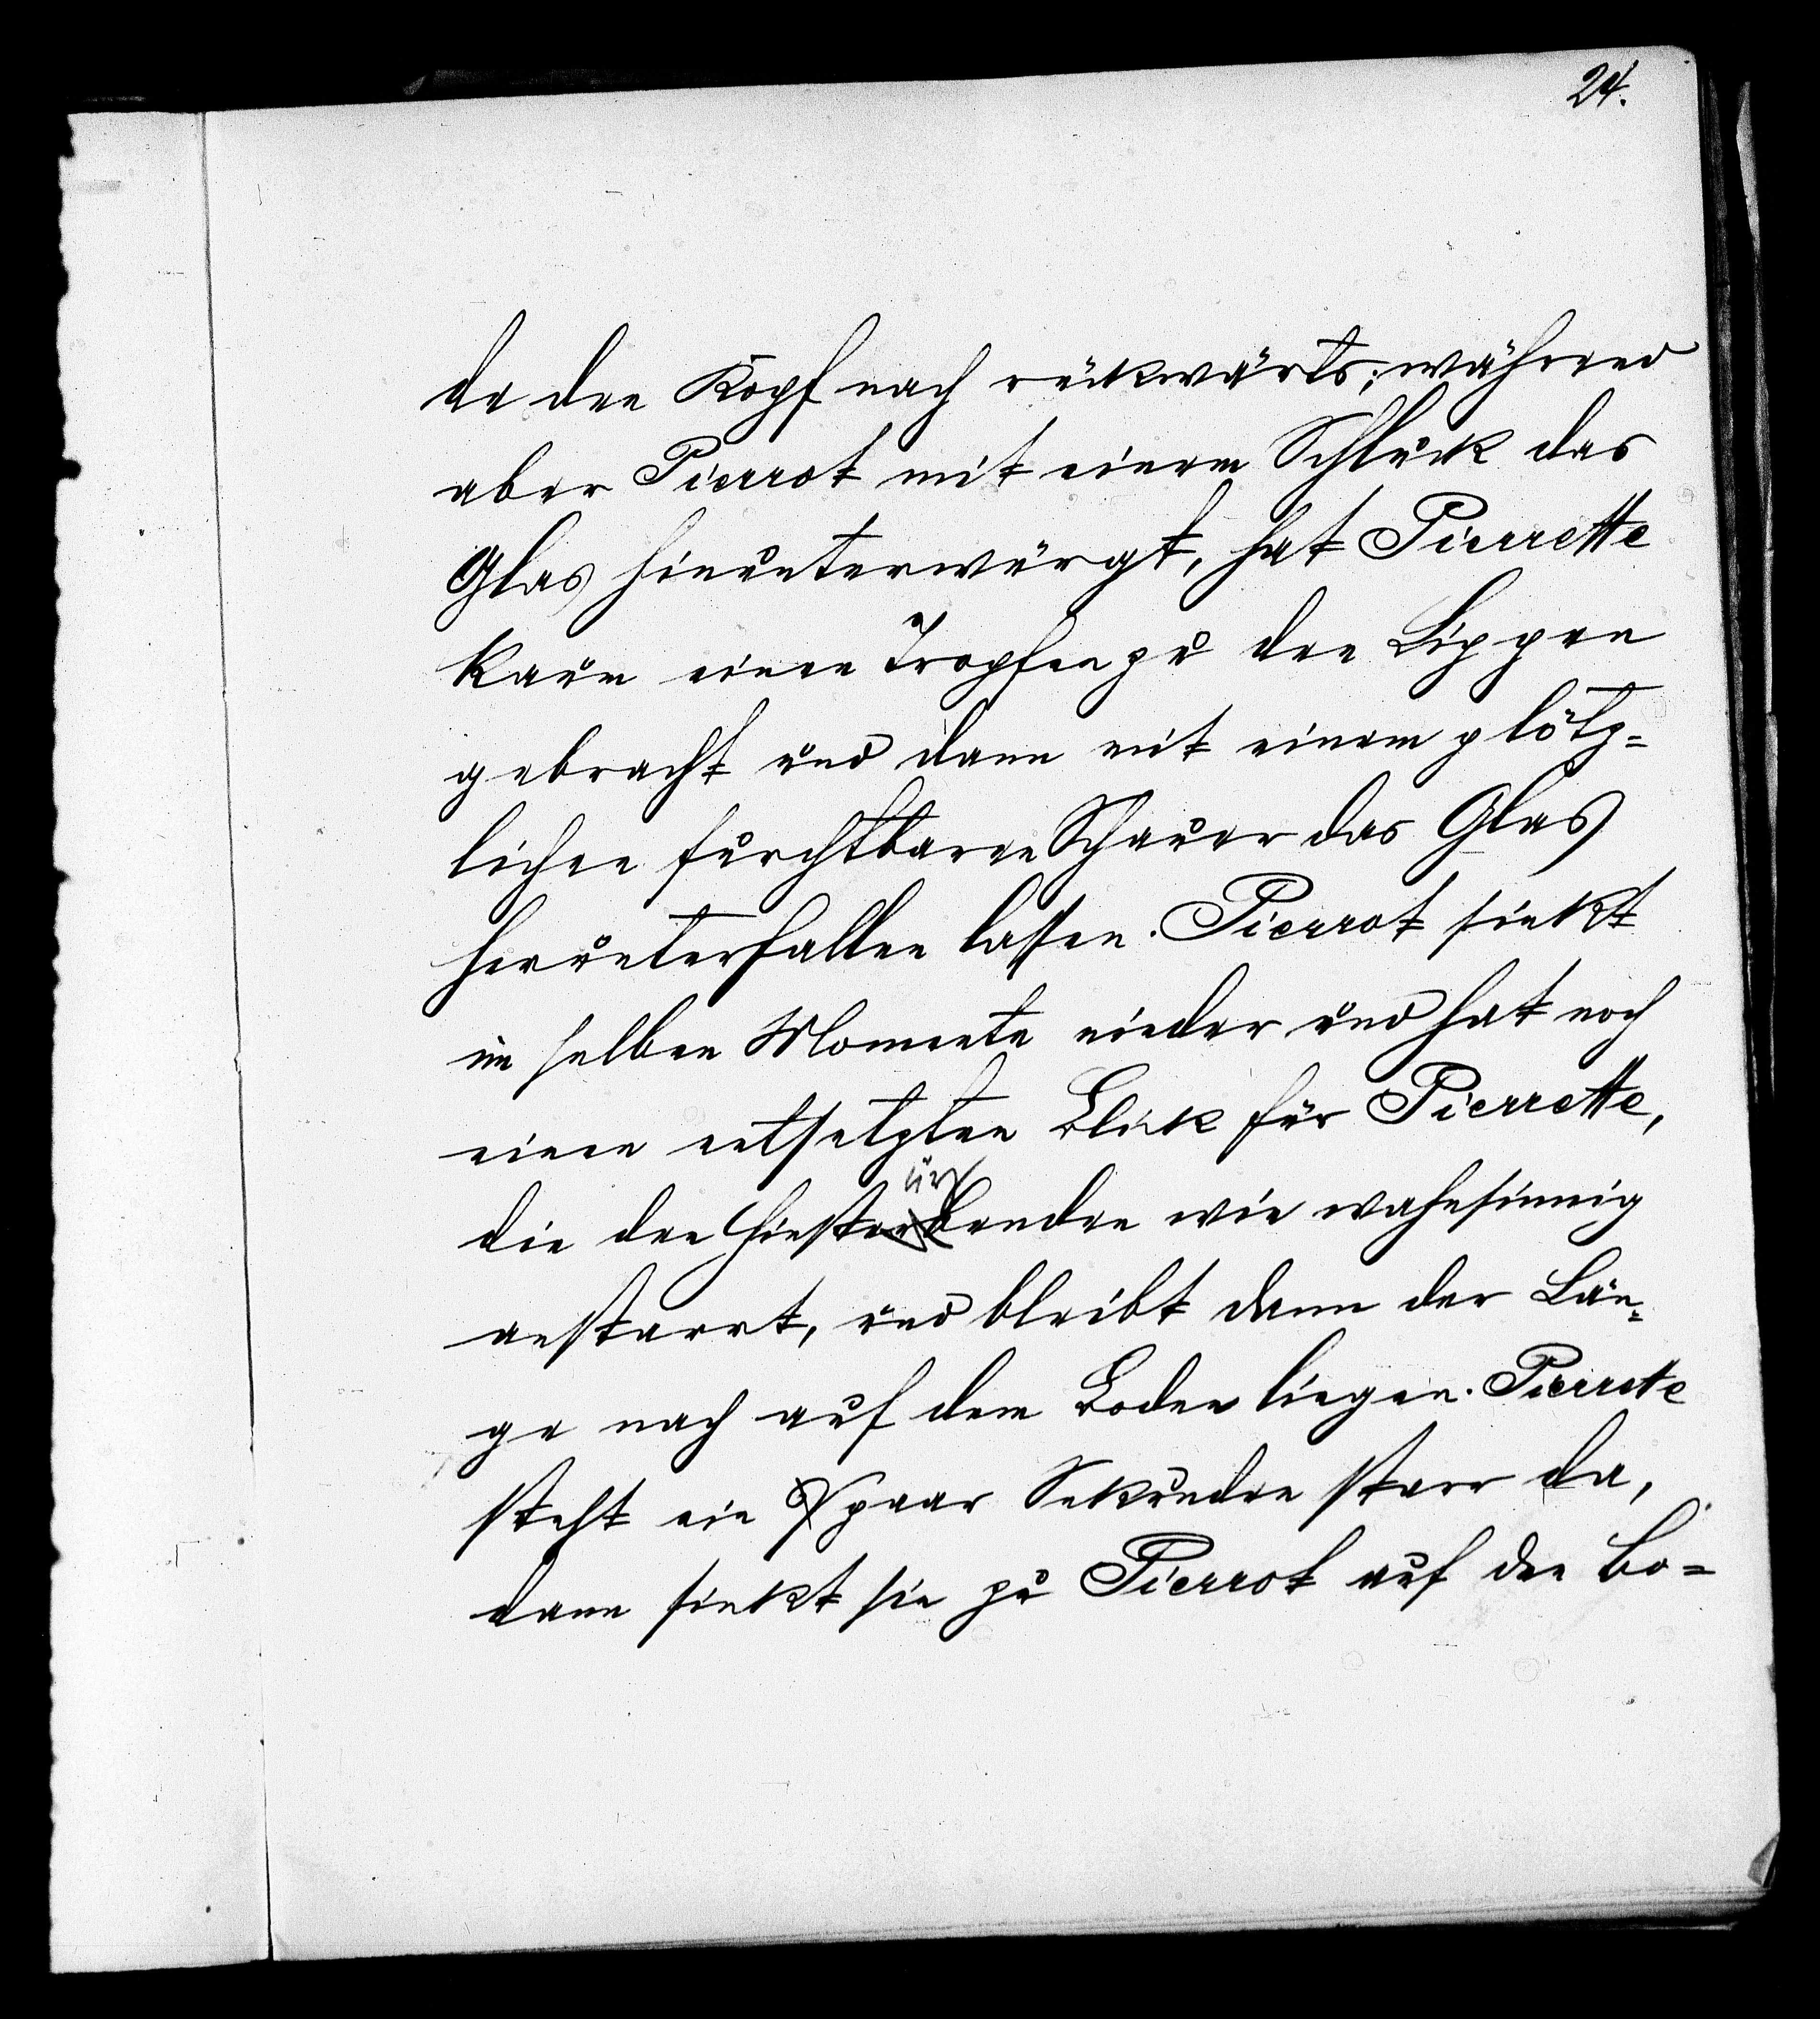 24.
de den Kopf nach rückwärts; während
aber Pierrot mit einem Schluck das
Glas hinunterwürgt, hat Pierrette
kaum einen Tropfen zu den Lippen
gebracht und dann mit einem plötz=
lichen furchtbaren Schauer das Glas
herunterfallen lassen. Pierrot sinkt
im selben Momente nieder und hat noch
einen entsetzten Blick für Pierrette,
die den Hinstürzenden wie wahnsinnig
anstarrt, und bleibt dann der Län=
ge nach auf dem Boden liegen. Pierrette
steht ein paar Sekunden starr da,
dann sinkt sie zu Pierrot auf den Bo=